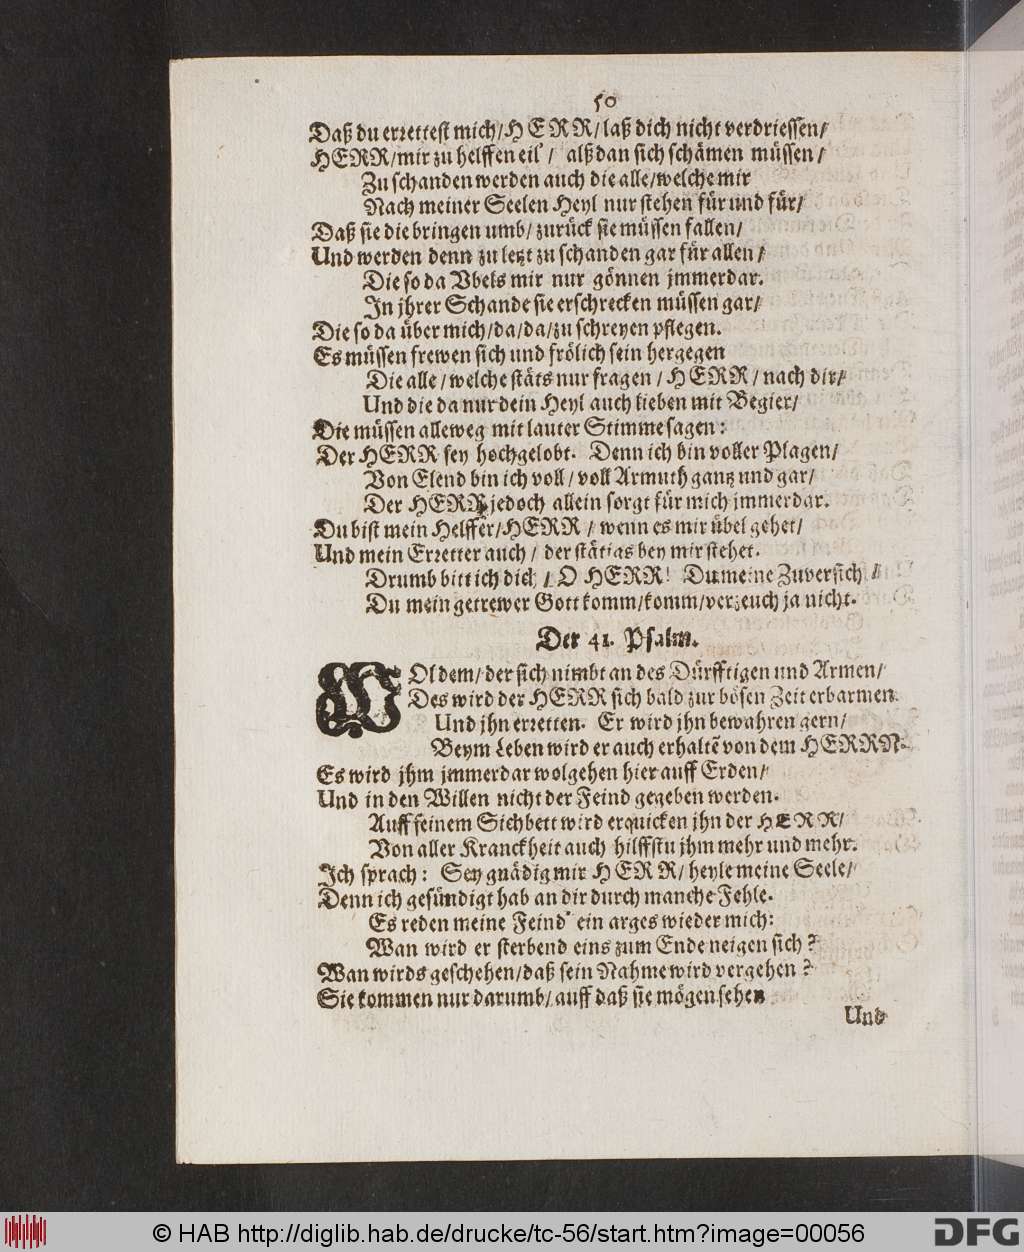 50
Daß du erꝛettest mich/HERR/laß dich nicht verdriessen/
HERR/mir zu helffen eil'/ alßdan sich schämen müssen/
Zu schanden werden auch die alle/welche mir
Nach meiner Seelen Heyl nur stehen für und für/
Daß sie die bringen umb/zurück sie müssen fallen/
Und werden denn zu letzt zu schanden gar für allen/
Die so da Vbels mir nur gönnen jmmerdar.
In jhrer Schande sie erschrecken müssen gar/
Die so da über mich/da/da/zu schreyen pflegen.
Es müssen frewen sich und frölich sein hergegen
Die alle/welche stäts nur fragen/HERR/nach dir/
Und die da nur dein Heyl auch lieben mit Begier/
Die müssen alleweg mit lauter Stimme sagen:
Der HERR sey hochgelobt. Denn ich bin voller Plagen/
Von Elend bin ich voll/voll Armuth gantz und gar/
Der HERR jedoch allein sorgt für mich jmmerdar.
Du bist mein Helffer/HERR/wenn es mir übel gehet/
Und mein Erꝛetter auch/der stätigs bey mir stehet.
Drumb bitt ich dich/O HERR! Du meine Zuversich /
Du mein getrewer Gott komm/komm/verzeuch ja nicht.
Der 41. Psalm.
WOl dem/der sich nimbt an des Dürfftigen und Armen/
Des wird der HERR sich bald zur bösen Zeit erbarmen
Und jhn erꝛetten. Er wird jhn bewahren gern/
Beym Leben wird er auch erhaltē von dem HERRN.
Es wird jhm jmmerdar wolgehen hier auff Erden/
Und in den Willen nicht der Feind gegeben werden.
Auff seinem Sichbett wird erquicken jhn der HERR/
Von aller Kranckheit auch hilffstu jhm mehr und mehr.
Ich sprach: Sey gnädig mir HERR/heyle meine Seele/
Denn ich gesündigt hab an dir durch manche Fehle.
Es reden meine Feind' ein arges wieder mich:
Wan wird er sterbend eins zum Ende neigen sich?
Wan wirds geschehen/daß sein Nahme wird vergehen?
Sie kommen nur darumb/auff daß sie mögen sehen
Und
© HAB http://diglib.hab.de/drucke/tc-56/start.htm?image=00056
DFG